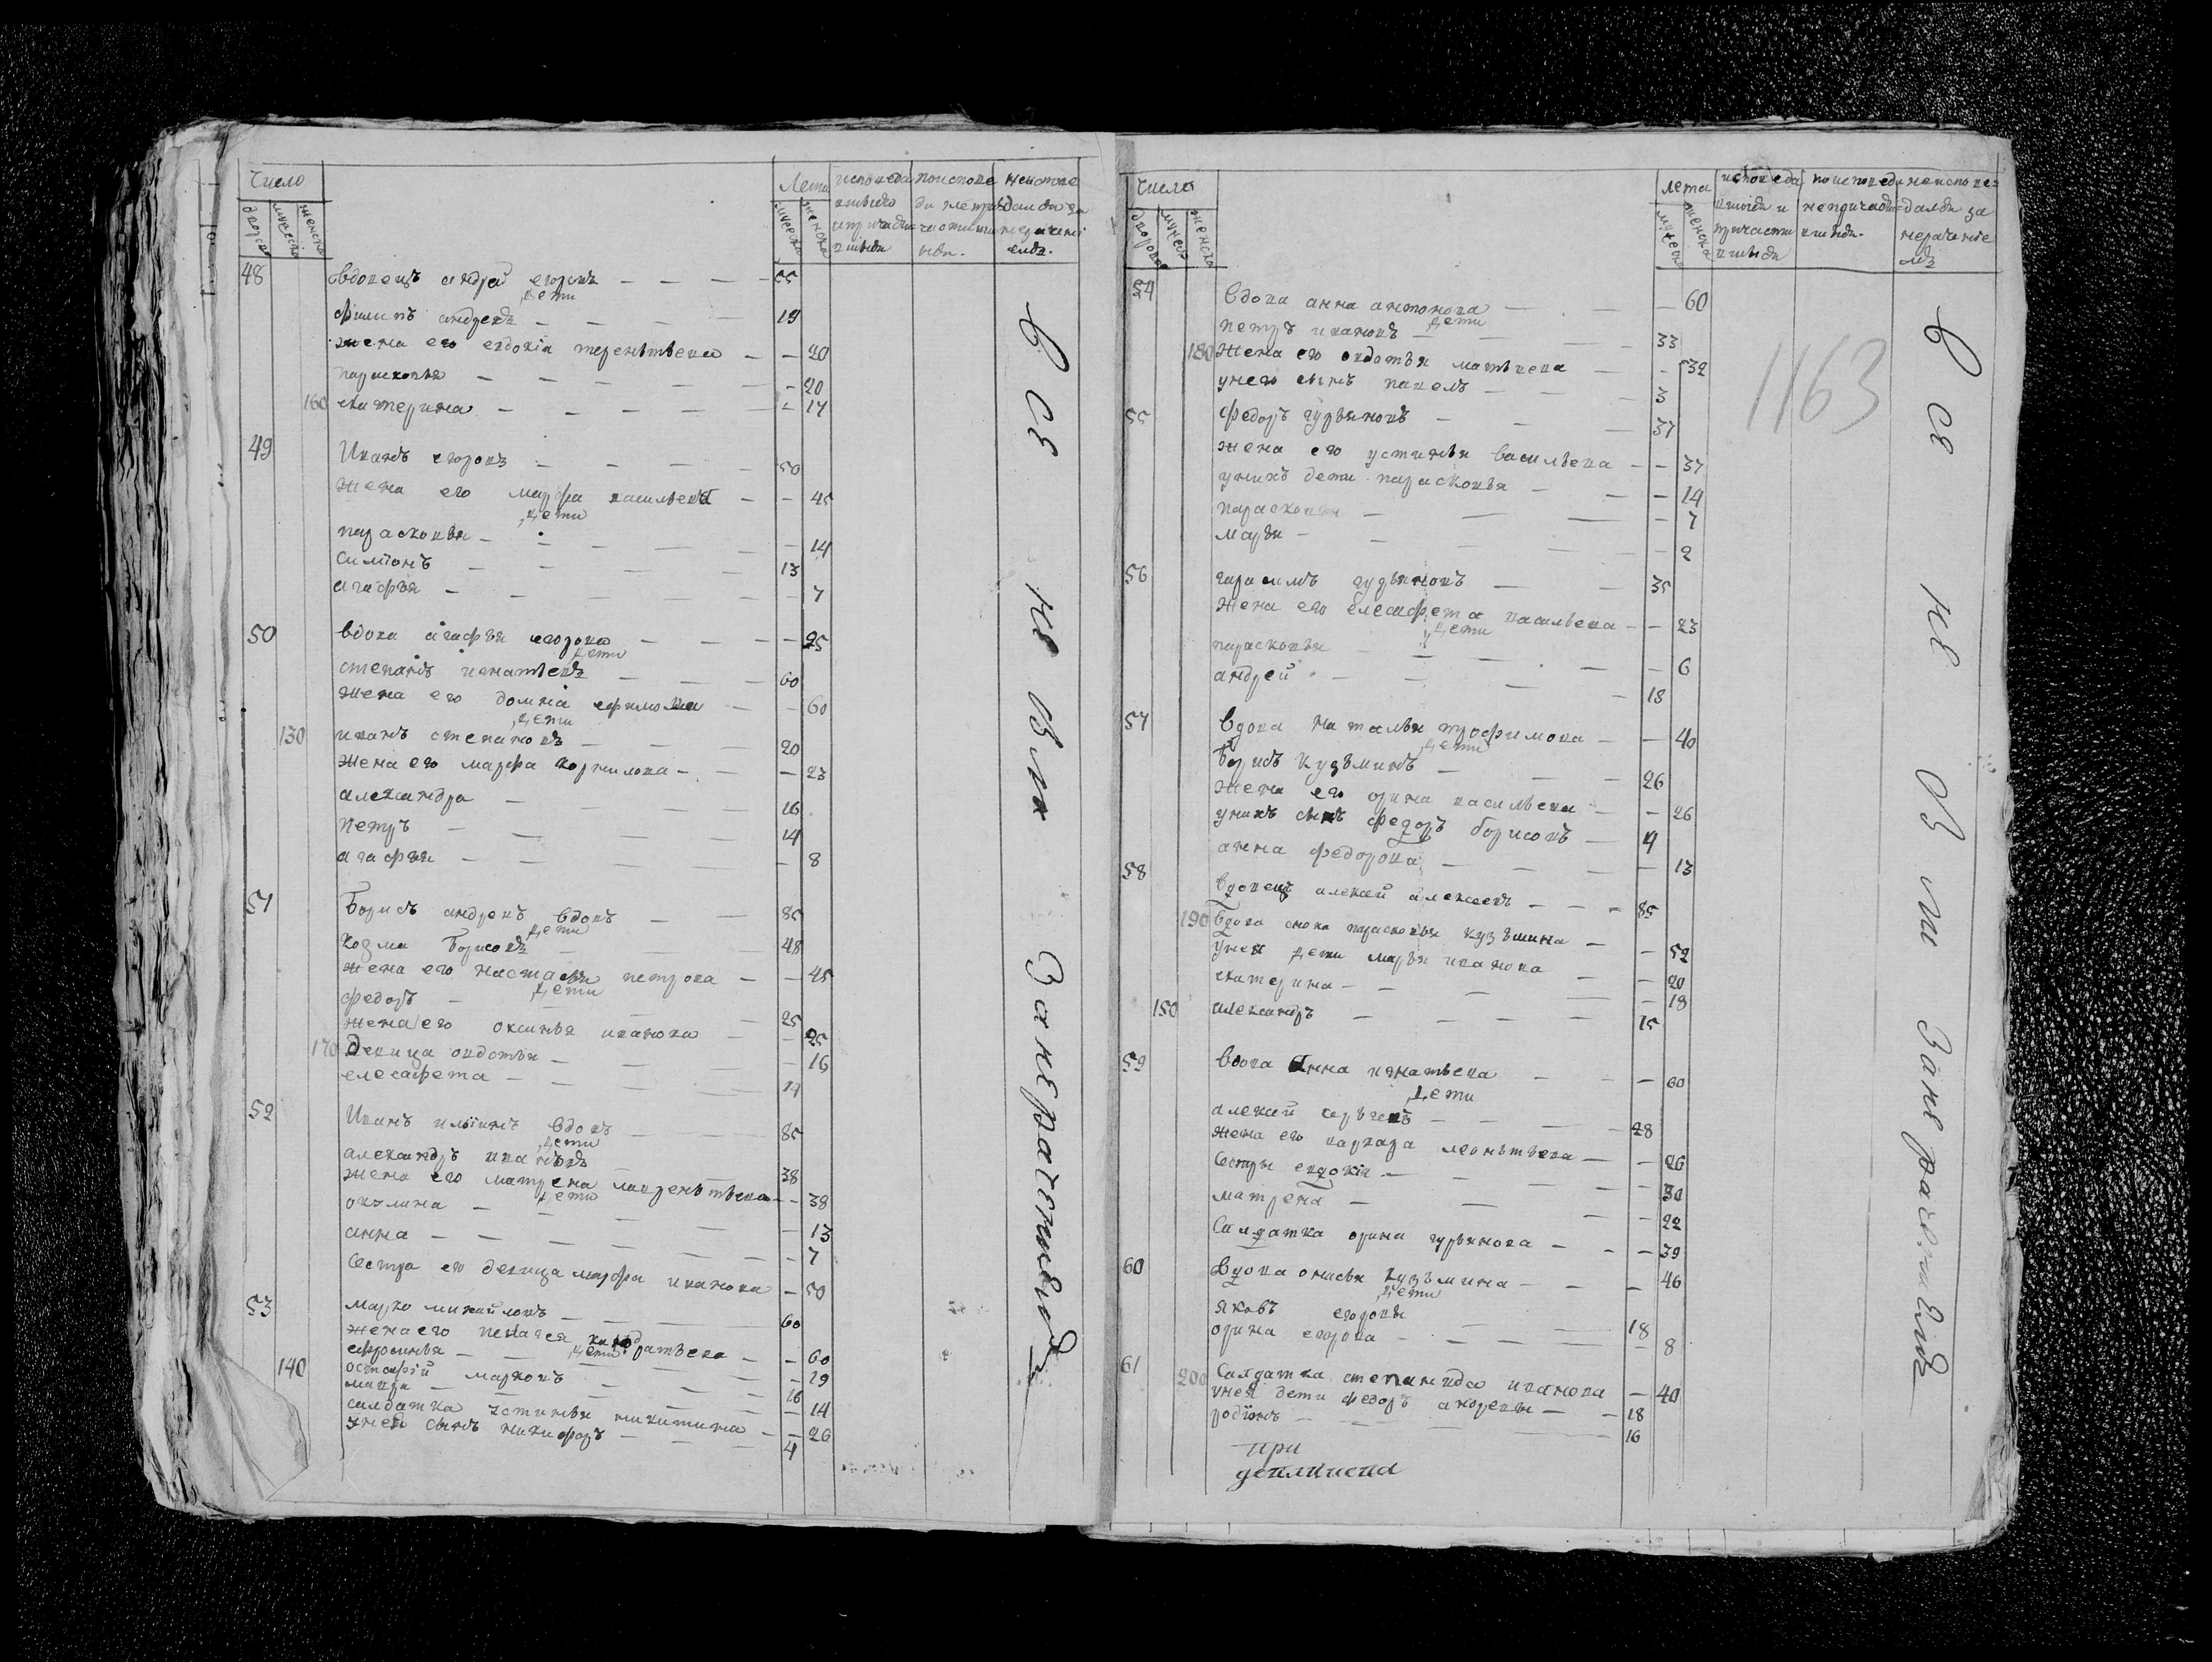 Число
Лета
дворов
мужеска
женска
мужеска
женска
48 вдовецъ андрей егоровъ — — — — 55
дети
филипъ андреевъ — — — — 19
жена его евдокіа терентьева — — 20
парасковья — — — — — 20
160 екатерина — — — — — 17
49 Иванъ егоровъ — — — — 50
жена его марфа васильева — — 45
дети
парасковья — — — — — 14
симіонъ — — — — 13
агафья — — — — 7
50 вдова агафья егорова — — — — 85
дети
степанъ игнатьевъ — — — 60
жена его домна ефимова — — 60
дети
130 иванъ степановъ — — — 20
жена его марфа корнилова — — — 23
александра — — — — 16
петръ — — — — 14
агафья — — — — 8
51 Борисъ андреевъ вдовъ — — 85
дети
козма Борисовъ — — 48
жена его настасья петрова — — 45
дети
федоръ — — — 25
жена его оксинья иванова — — 25
170 девица авдотья — — — — 16
елесафета — — — 17
52 Иванъ ильинъ вдовъ — — 85
дети
александръ ивановъ — — 38
жена его матрена лаврентьева — — 38
дети
окулина — — — — — 13
анна — — — — — 7
Сестра его девица марфа иванова — 50
53 марко михайловъ — — — — 60
жена его пелагея кондратьева — — 60
дети
ефросинья — — — — 19
140 остафій марковъ — — — 16
мавра — — — — — 14
салдатка устинья никитина — — 26
у неи сынъ никифоръ — — — 4
Все не были За нерачениемъ
Число
лета
дворовъ
женска
мужеска
женска
1163
54 Вдова анна антонова — — — 60
дети
петръ ивановъ — — — 33
180 Жена его авдотья матвеева — — 32
у него сынъ павелъ — — — 3
55 федоръ гурьяновъ — — — 37
жена его устинья васильева — — 37
у нихъ дети парасковья — — — 14
парасковья — — — — 7
марья — — — — — 2
56 гарасимъ гурьяновъ — — 35
жена его елесафета васильева — — 23
дети
парасковья — — — — — 6
андрей — — — — 18
57 Вдова наталья трофимова — — 40
дети
Борисъ кузьминъ — — — 26
жена его орина васильева — — 26
у нихъ сынъ федоръ борисовъ — 4
анна федорова — — — 13
58 вдовецъ алексей алексеевъ — — — 85
190 вдова сноха парасковья кузьмина — — 52
у неи дети марья иванова — — 20
екатерина — — — — — 18
150 александръ — — — — — 15
59 Вдова анна игнатьева — — — 60
дети
алексей сергеевъ — — — — 28
жена его варвара леонтьева — — 26
Сестры евдокіа — — — — — 30
матрена — — — — 22
Салдатка орина гурьянова — — — 39
60 Вдова онисья кузьмина — — — 46
дети
яковъ егоровы — — — 18
орина егорова — — — — 8
61 200 Салдатка степанида иванова — 40
у неи дети федоръ андреевы — — 18
родіонъ — — — — 16
при
Все не были За нерачениемъ